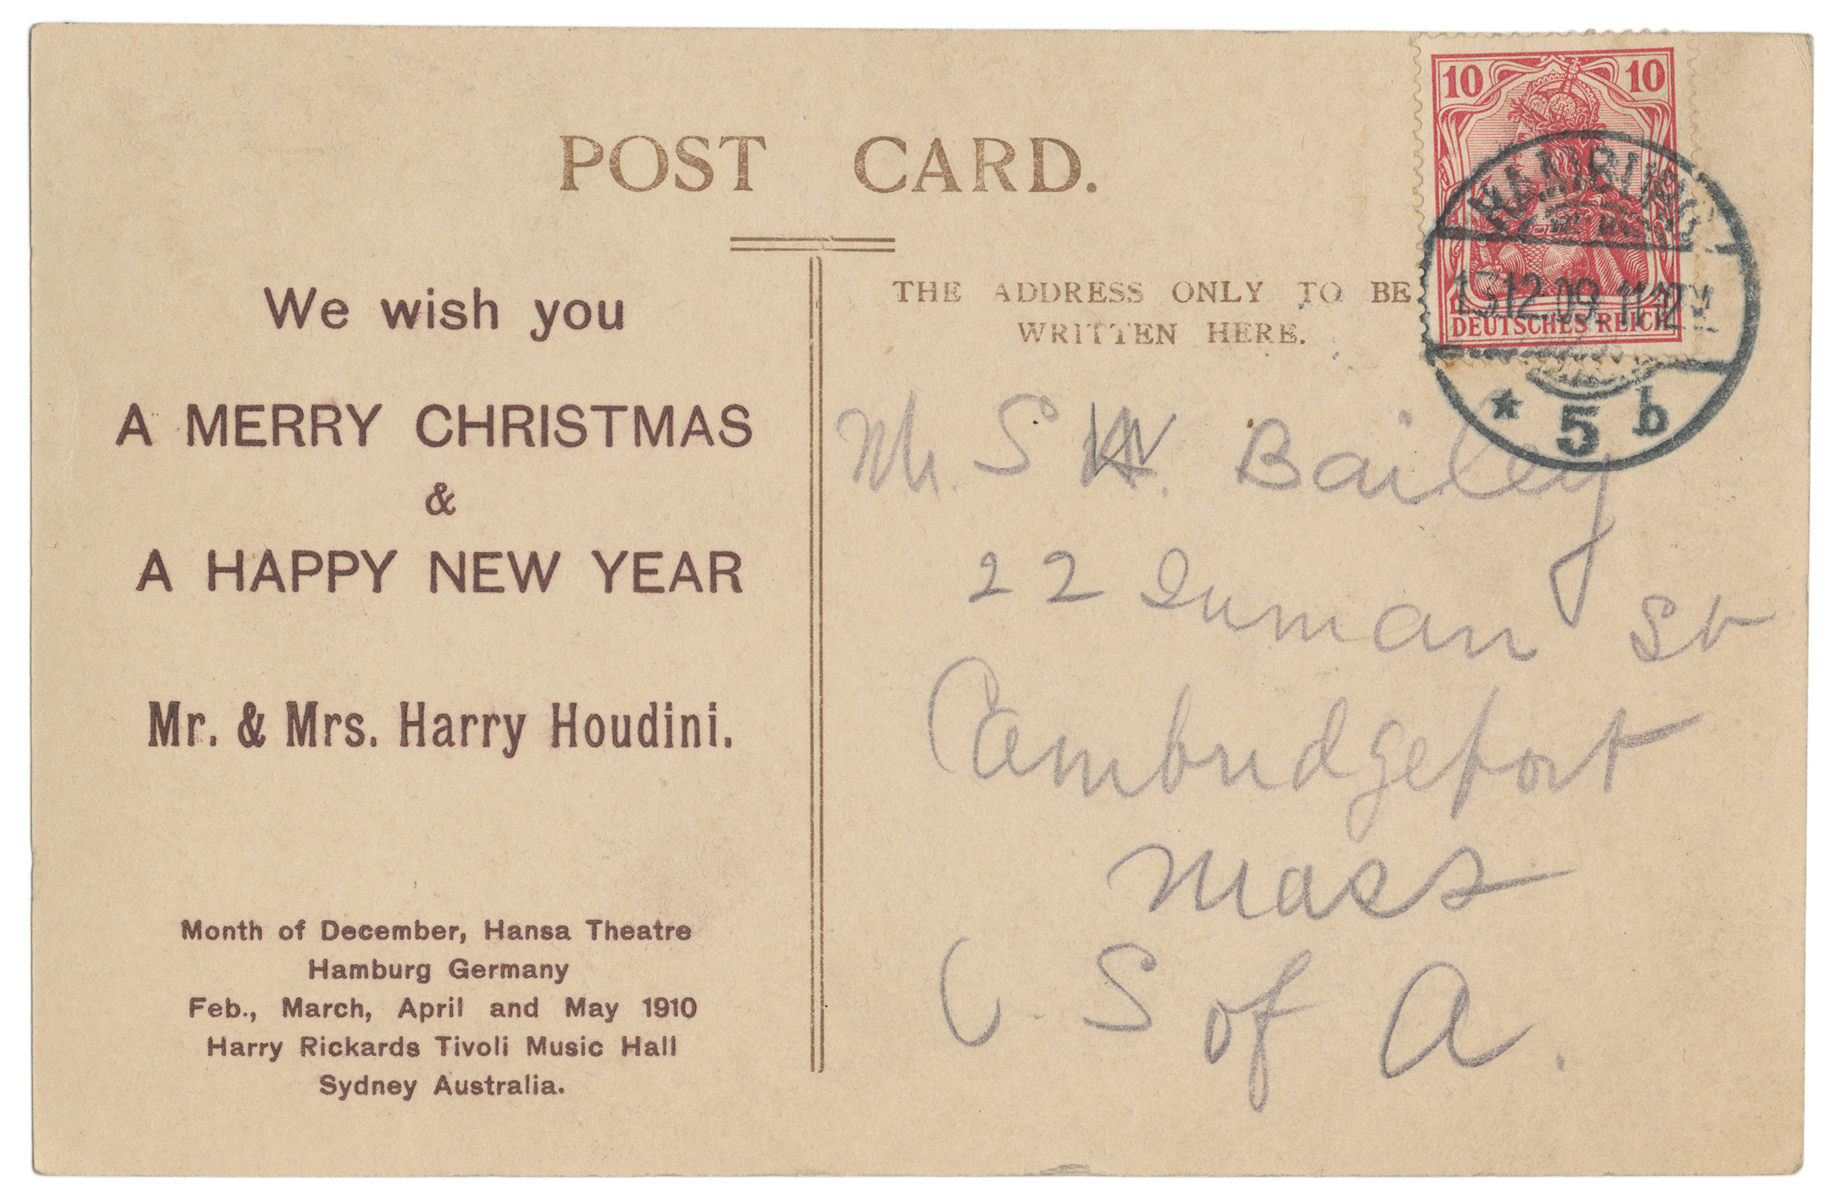 POST CARD.
We wish you
A MERRY CHRISTMAS
&
A HAPPY NEW YEAR
Mr. & Mrs. Harry Houdini.
Month of December, Hansa Theatre
Hamburg Germany
Feb., March, April and May 1910
Harry Rickards Tivoli Music Hall
Sydney Australia.
THE ADDRESS ONLY TO BE
WRITTEN HERE.
10 10
DEUTSCHES REICH
HAMBURG
13.12.09. 11-12
* 5 b
Mr. S W. Bailey
22 Inman St
Cambridgeport
Mass
U. S of A.